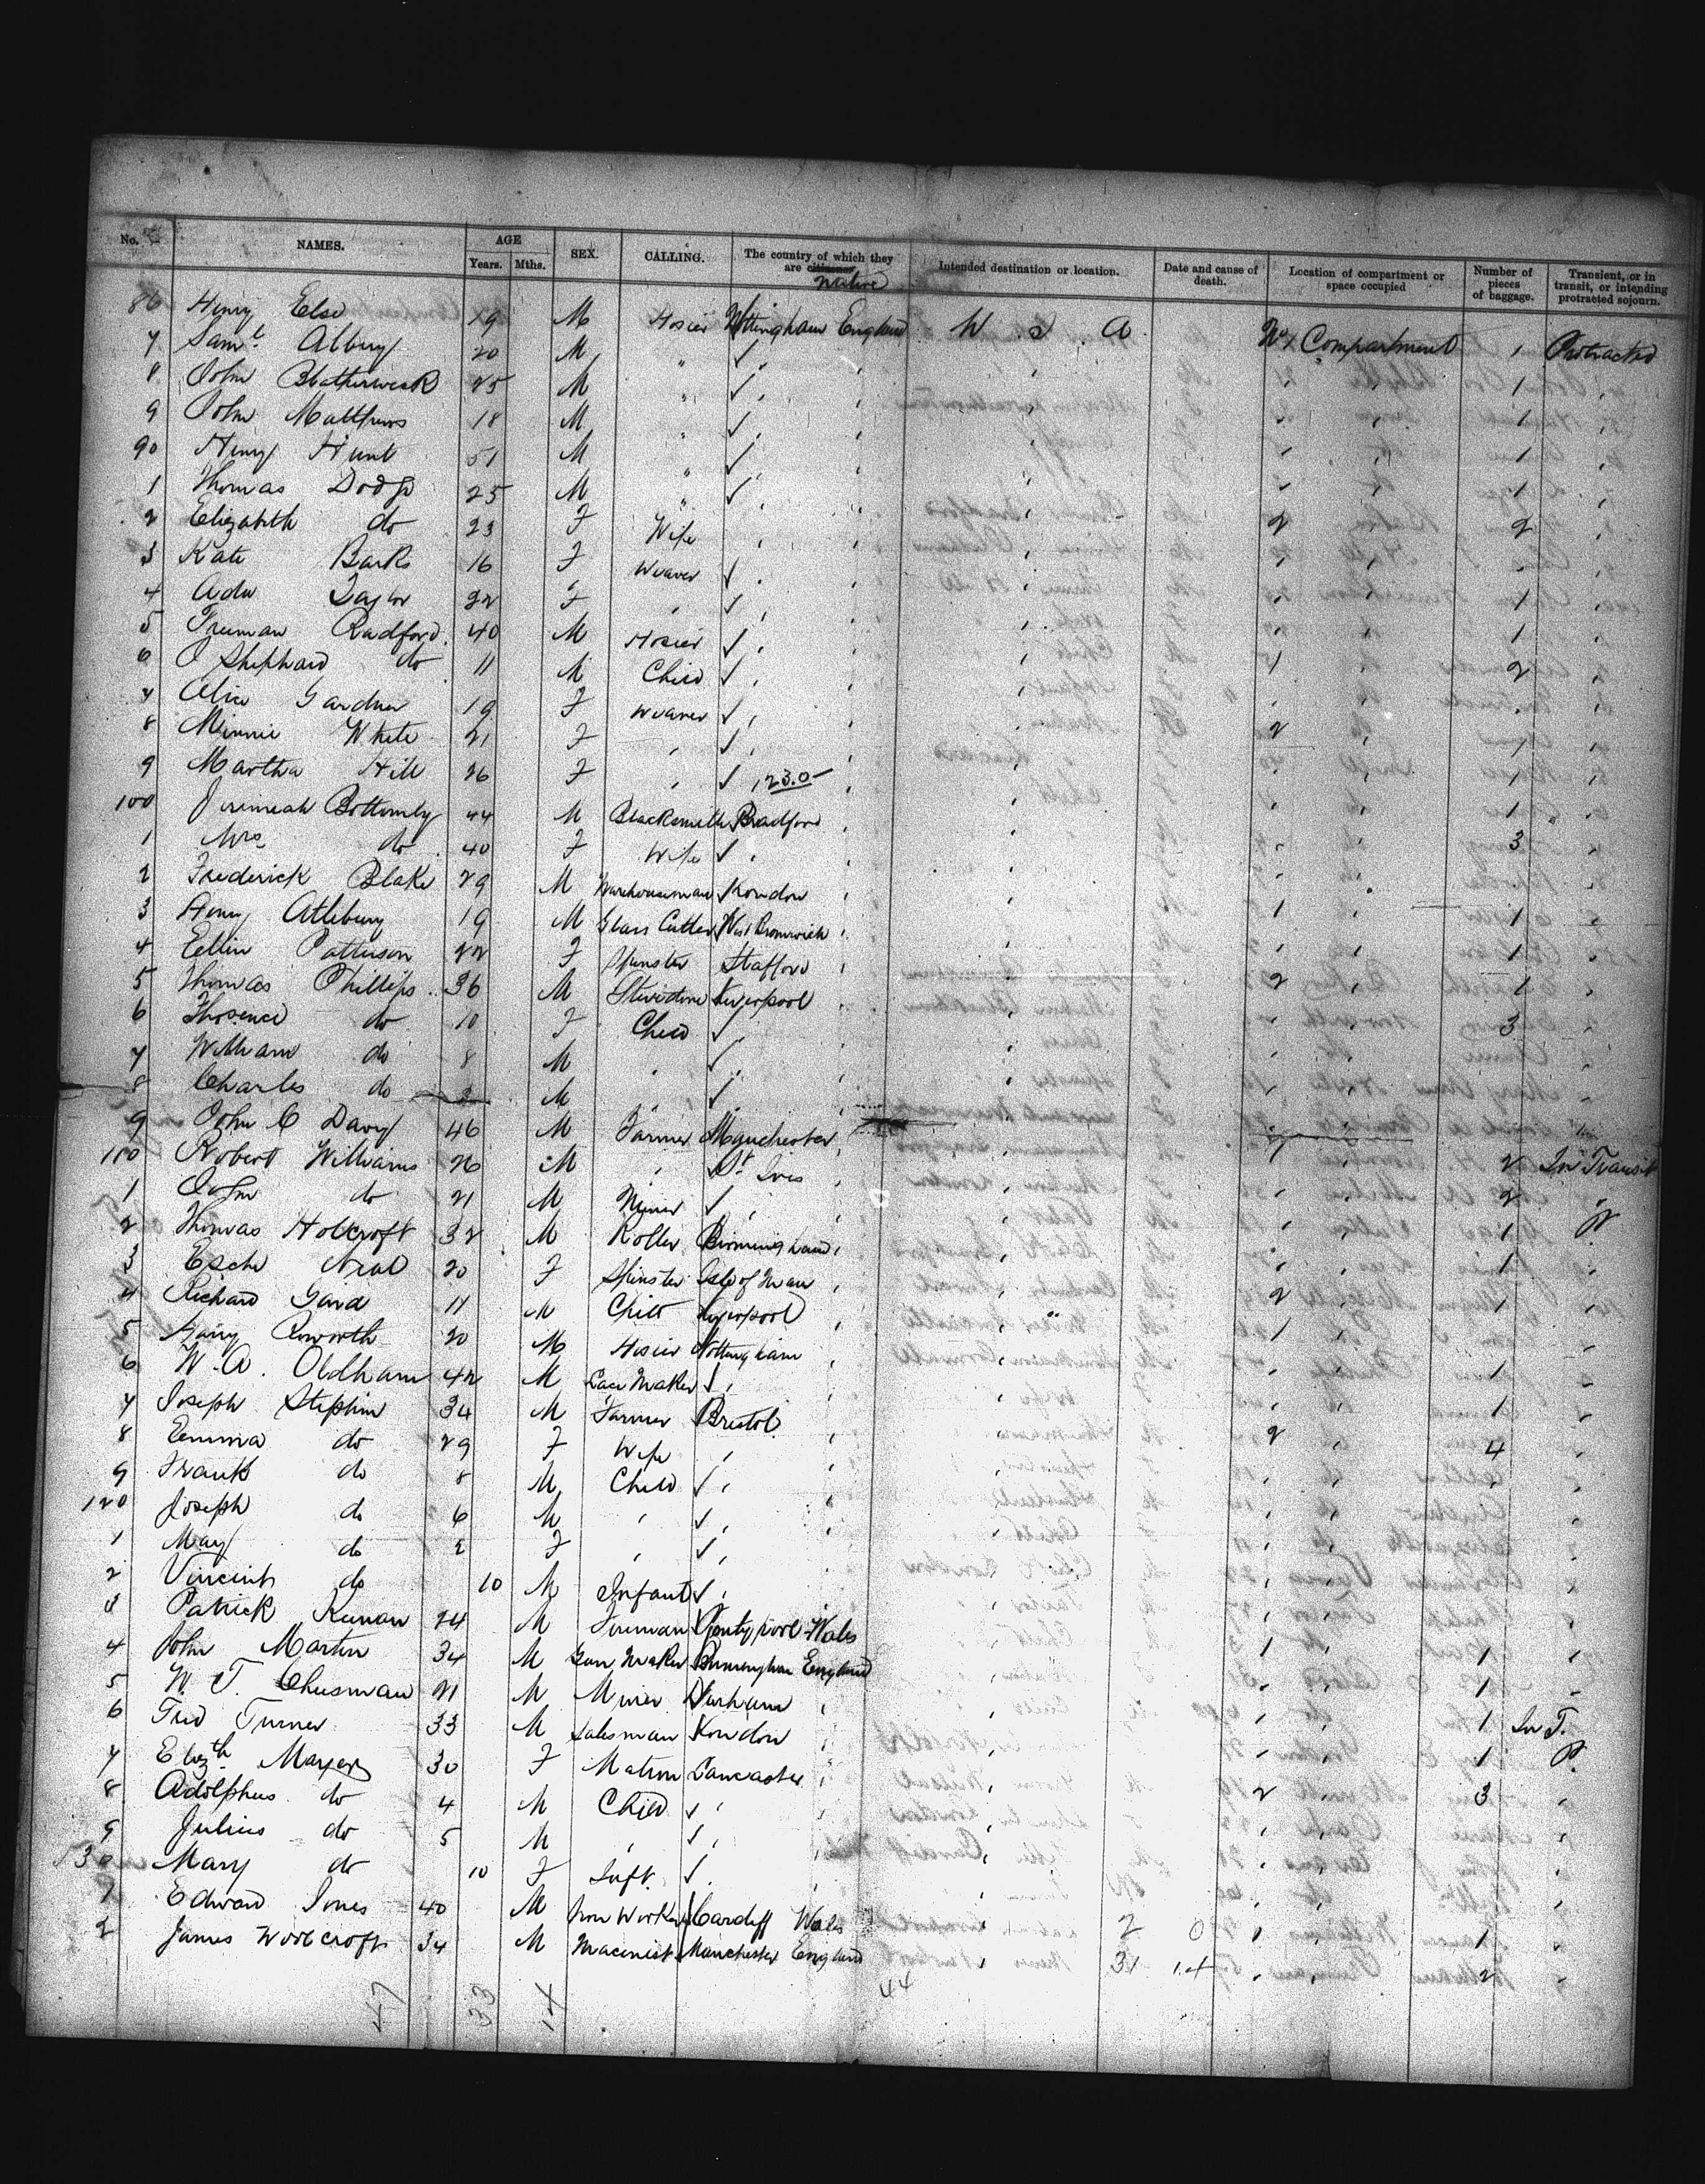 No. NAMES. AGE Years. Mths. SEX. CALLING. The country of which they are citizens Native Intended destination or location. Date and cause of death. Location of compartment or space occupied Number of pieces of baggage. Transient, or in transit, or intending protracted sojourn.
86 Henry Else 19 M Hosier Nottingham England U S A No 1 Compartment 1 Protracted
7 Saml. Albury 20 M " ✓ " 1 "
8 John Blatherwick 25 M " ✓ " 1 "
9 John Matthews 18 M " ✓ " 1 "
90 Henry Hunt 51 M " ✓ " 1 "
1 Thomas Dodge 25 M " ✓ " 2 "
2 Elizabeth do 23 F Wife " 2
3 Kate Barks 16 F Weaver ✓ " 1 "
4 Ada Taylor 22 F " ✓ " 1 "
5 Freeman Radford 40 M Hosier ✓ " 1 2 "
6 J Shephard do 11 M Child ✓ "
7 Alice Gardner 19 F Weaver ✓ " 2 1 "
8 Minnie White 21 F " ✓ " 1 "
9 Martha Hill 26 F " ✓ 123.0 1 "
100 Jeremiah Bottomly 44 M Blacksmith Bradford " 3 "
1 Mrs do 40 F Wife ✓ "
2 Frederick Blake 29 M Warehouseman London " 1 1 "
3 Henry Attebury 19 M Glass Cutter West Bromwich " 1 "
4 Ellen Patterson 22 F Spinster Stafford " 2 1 "
5 Thomas Phillips 36 M Stevidore Liverpool " 3 "
6 Thosence do 10 F Child ✓ "
7 William do 8 M " ✓ "
8 Charles do 3 M " ✓
9 John C Davy 46 M Farmer Manchester " 1 2 In Transit
110 Robert Williams 26 M " St Ives " 2 "
1 John do 21 M Miner ✓ " 1 P
2 Thomas Holcroft 32 M Roller Birmingham " 1 "
3 Neal 20 F Spinster Isle of Man " 2 1 "
4 Richard Gard 11 M Child Liverpool " 1
5 Harry 20 M Hosier Nottingham 1 "
6 W. A. Oldham 42 M Lace Maker ✓ " 1 "
7 Joseph Stephen 34 M Farmer Bristol 2 4 "
8 Emma do 29 F Wife "
9 Frank do 8 M Child ✓ "
120 Joseph do 6 M " ✓ "
1 May do 2 F " ✓ "
2 Vincent do 10 M Infant ✓ "
3 Patrick Keenan 24 M Fireman Pontypool Wales 1 1 "
4 John Martin 34 M Gun Maker Birmingham England 1 "
5 W. T. Cheesman 21 M Miner Durham " 1 In T.
6 Fred Turner 33 M Salesman London " 1 P.
7 Elizth. Mayers 30 F Matron Lancaster " 2 3 "
8 Adolphus do 4 M Child ✓ "
9 Julius do 5 M " ✓ "
130 Mary do 10 F Inft. ✓
1 Edward Jones 40 M Iron Worker Cardiff Wales 2 0 1 1 "
2 James Woolcroft 34 M Macinist Manchester England 31 14 2 "
47 33 14 44